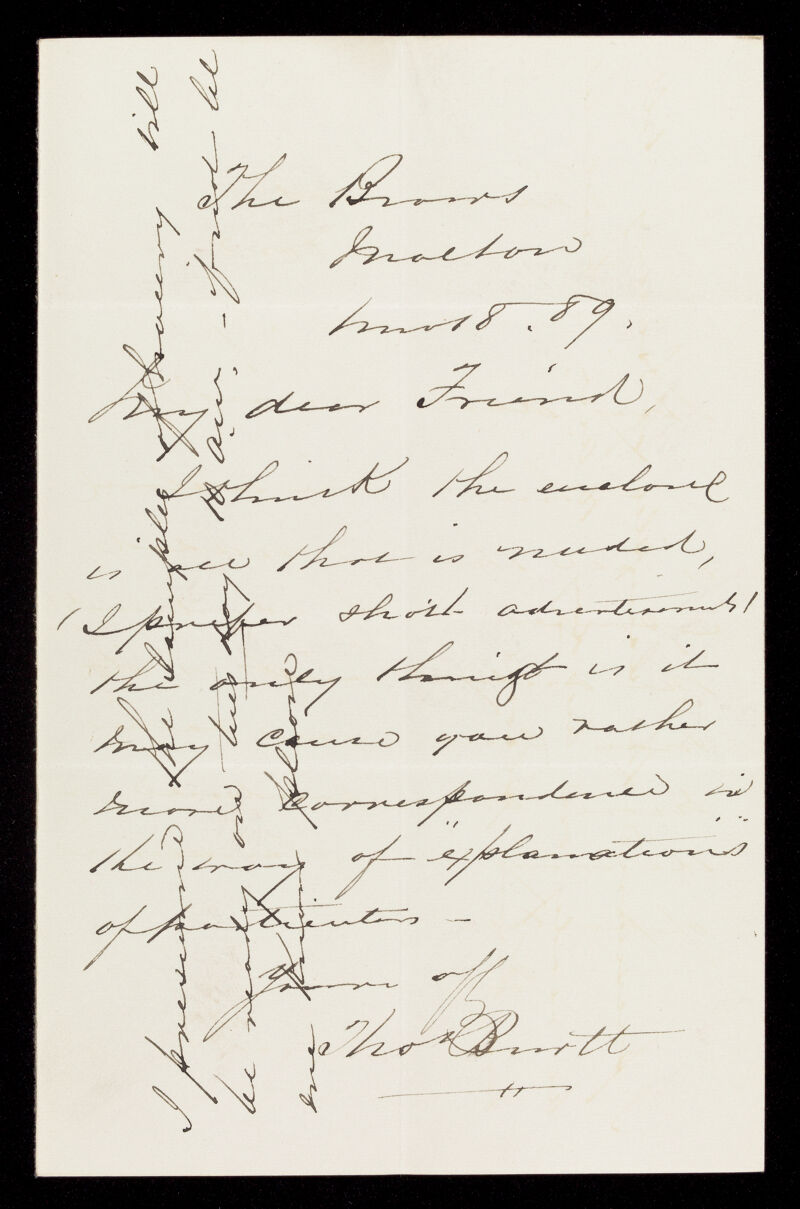 The Brows
Malton
Nov 18. 89.
My dear Friend,
I think the enclosed
is all that is needed,
(I prefer short advertisements)
the only thing is it
may cause you rather
more correspondence in
the way of "explanations"
of particulars –
Yours aff
Thos Burtt
I presume the samples of tracing will
be ready on Tuesday to air. – if not let
me know please